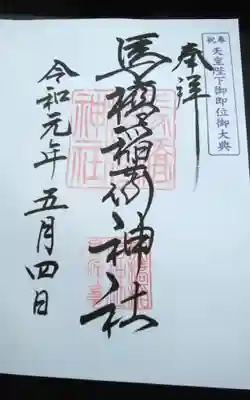 奉祝 天皇陛下御即位御大典
奉拝
馬橋稲荷神社
令和元年 五月四日